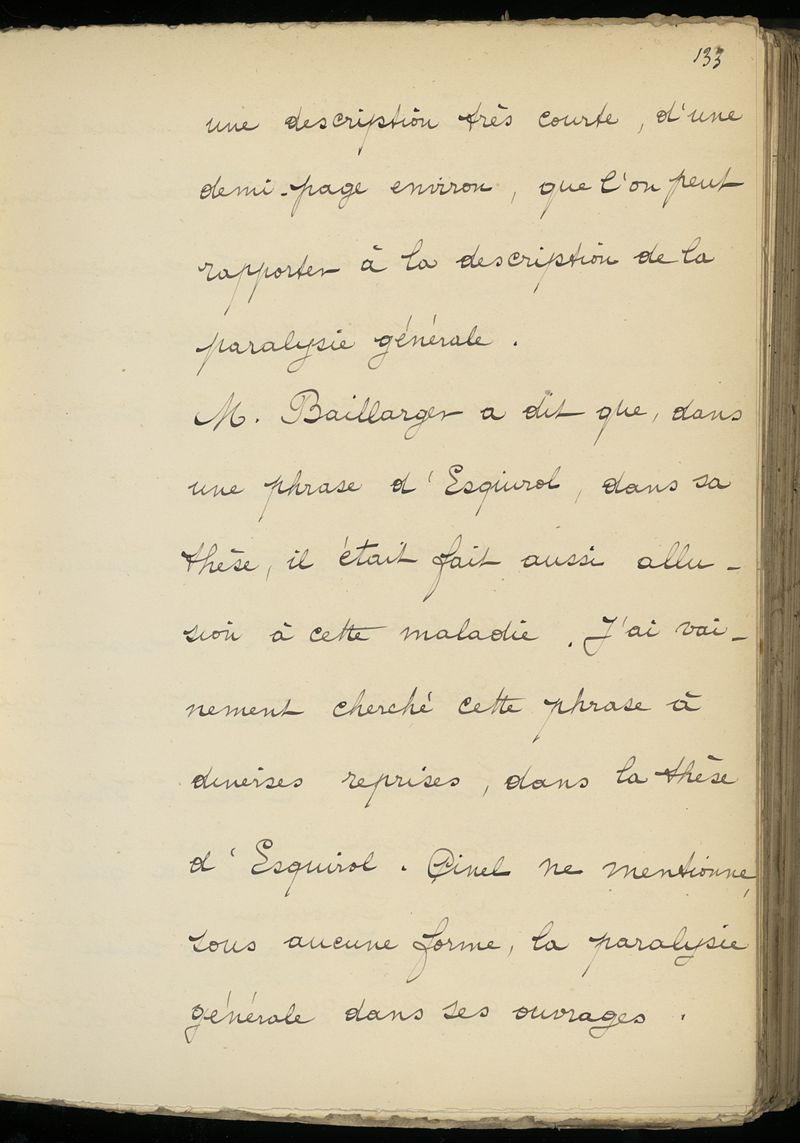 133
une description très courte, d'une
demi-page environ, que l'on peut
rapporter à la description de la
paralysie générale.
M. Baillarger a dit que, dans
une phrase d'Esquirol, dans sa
thèse, il était fait aussi allu-
sion à cette maladie. J'ai vai-
nement cherché cette phrase à
diverses reprises, dans la thèse
d'Esquirol. Pinel ne mentionne,
sous aucune forme, la paralysie
générale dans ses ouvrages.